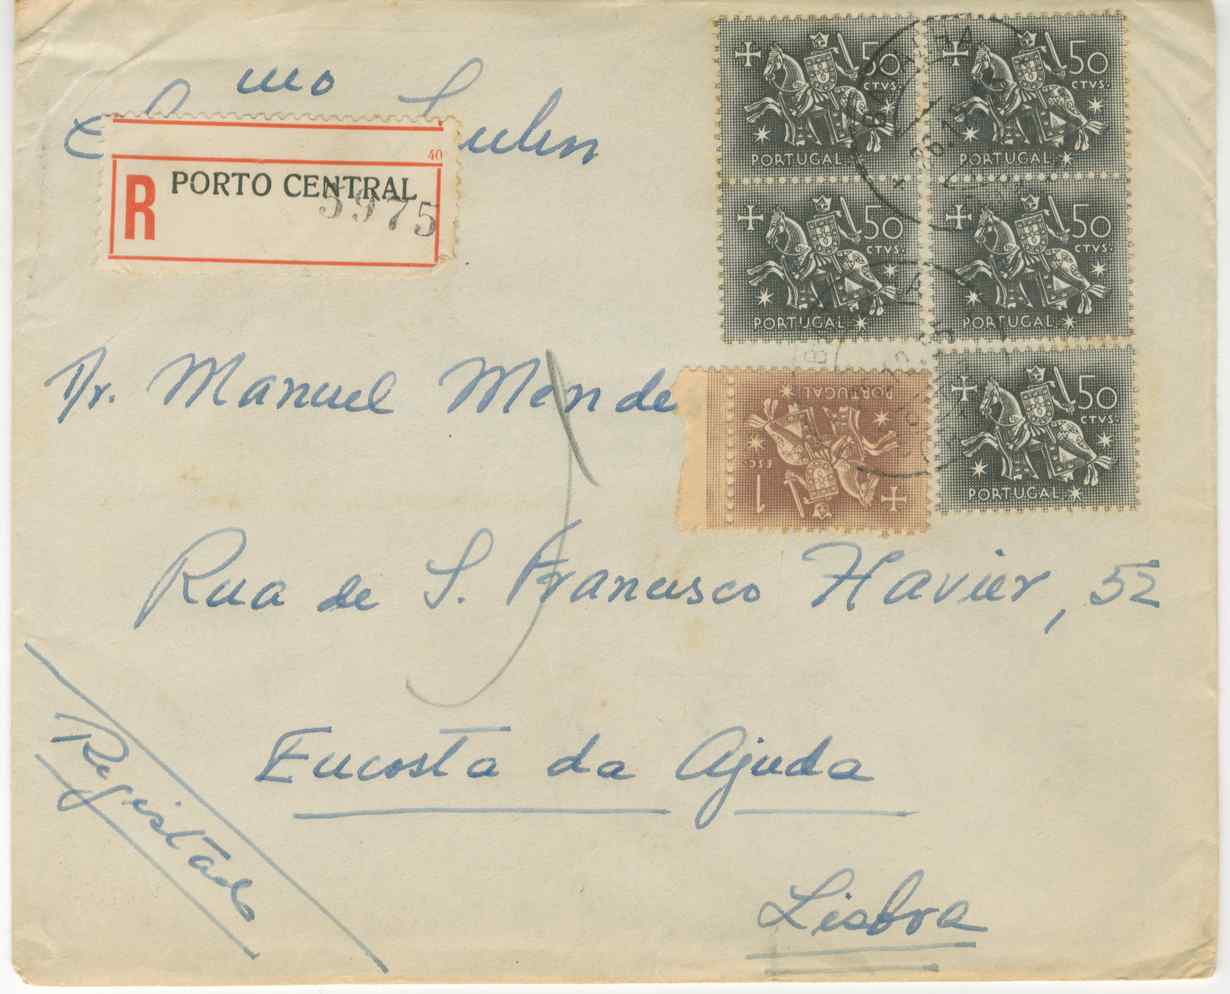 mo
PORTO CENTRAL
R
40
5975
50
CTVS.
PORTUGAL
50
CTVS.
PORTUGAL
50
CTVS.
PORTUGAL
50
CTVS.
PORTUGAL
50
CTVS.
PORTUGAL
1
ESC.
PORTUGAL
Dr. Manuel Mende
Rua de S. Francisco Xavier, 52
Encosta da Ajuda
Lisboa
Registado